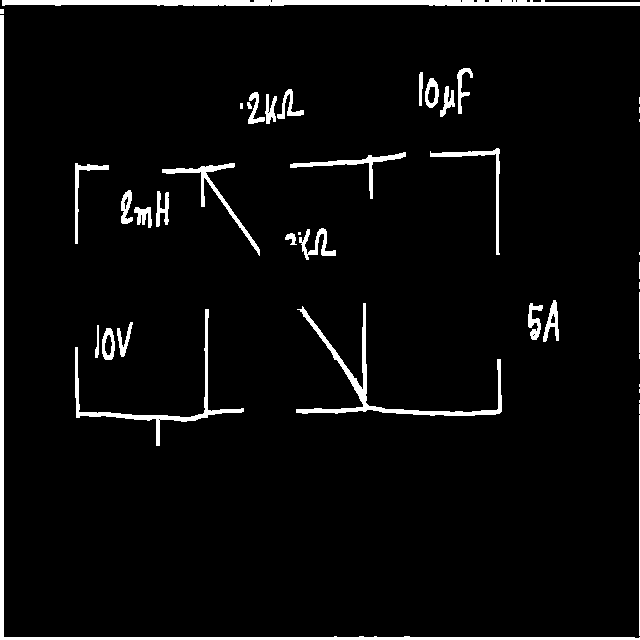 .2KΩ
10μF
2mH
10V
5A